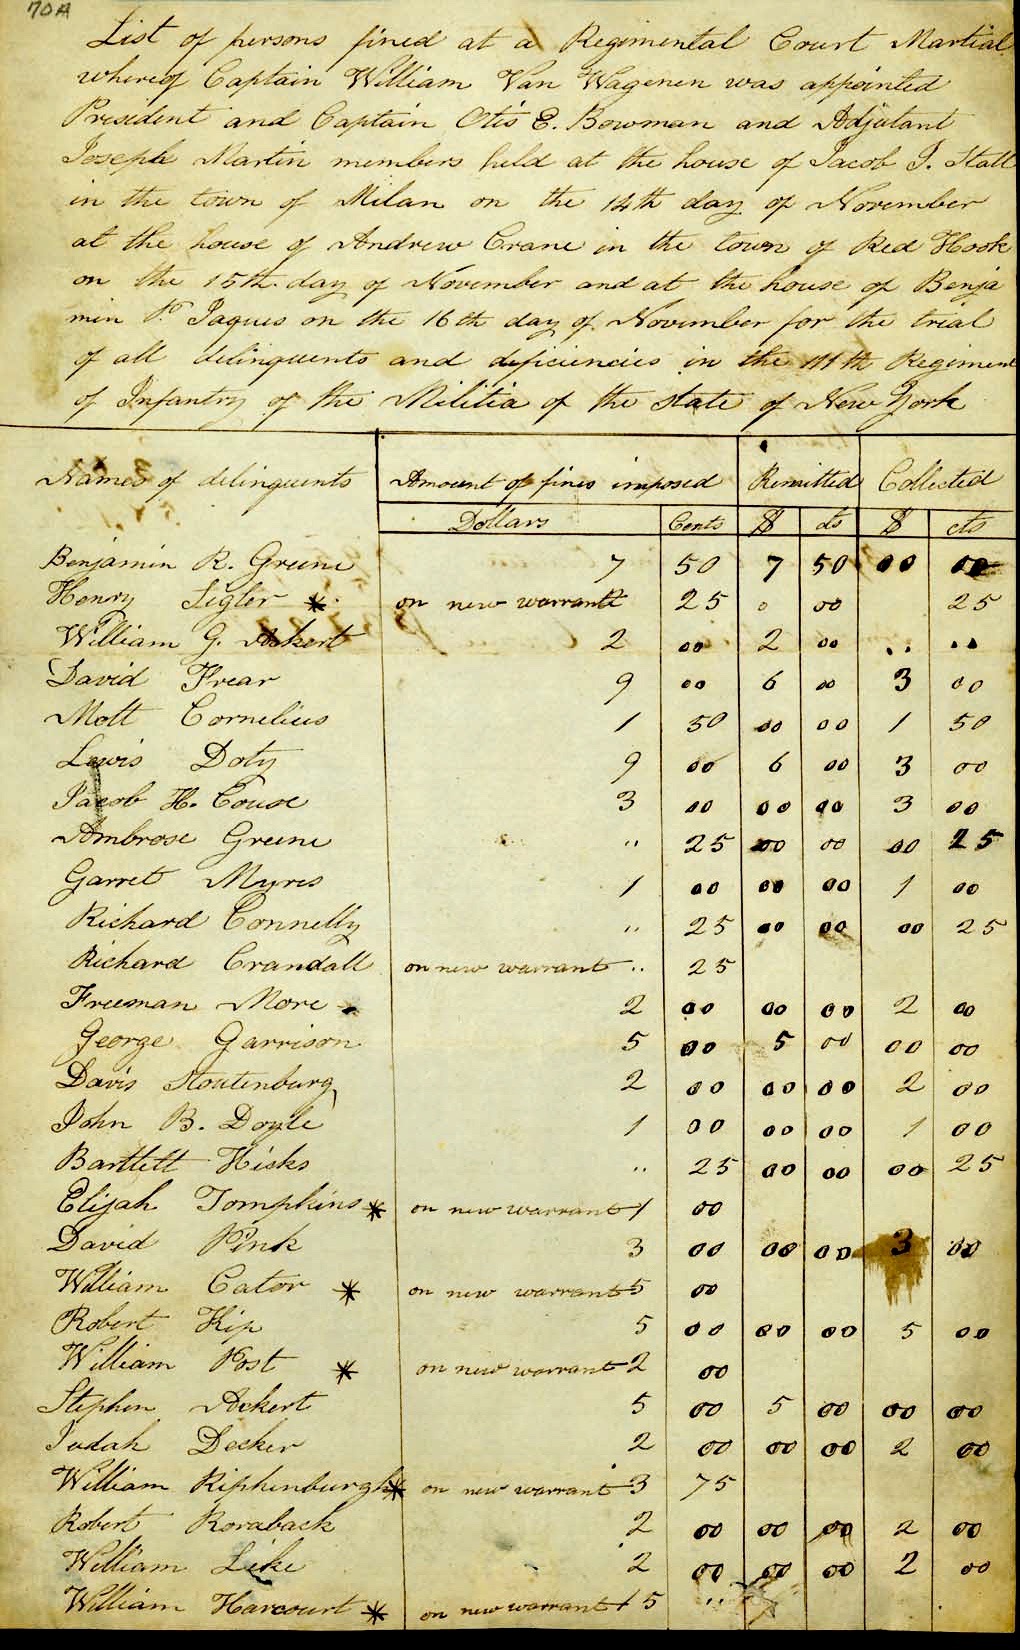 70A
List of persons fined at a Regimental Court Martial
whereof Captain William Van Wagenen was appointed
President and Captain Otis E. Bowman and Adjutant
Joseph Martin members held at the house of Jacob J. Stall
in the town of Milan on the 14th day of November
at the house of Andrew Crane in the town of Red Hook
on the 15th day of November and at the house of Benja
min P. Jaques on the 16th day of November for the trial
of all delinquents and deficiencies in the 111th Regiment
of Infantry of the Militia of the state of New York
Names of delinquents Amount of fines imposed Remitted Collected
Dollars Cents $ cts $ cts
Benjamin R. Greene 7 50 7 50 00 00
Henry Sigler * on new warrant 25 0 00 25
William G. Ackert 2 00 2 00 .. ..
David Frear 9 00 6 00 3 00
Mott Cornelius 1 50 00 00 1 50
Lewis Doty 9 00 6 00 3 00
Jacob H. Couse 3 00 00 00 3 00
Ambrose Greene .. 25 00 00 00 25
Garret Myres 1 00 00 00 1 00
Richard Connelly .. 25 00 00 00 25
Richard Crandall on new warrant .. 25
Freeman More 2 00 00 00 2 00
George Garrison 5 00 5 00 00 00
Davis Stoutenburg 2 00 00 00 2 00
John B. Doyle 1 00 00 00 1 00
Bartlett Hicks .. 25 00 00 00 25
Elijah Tompkins * on new warrant 1 00
David Pink 3 00 00 00 3 00
William Cator * on new warrant 5 00
Robert Kip 5 00 00 00 5 00
William Post * on new warrant 2 00
Stephen Ackert 5 00 5 00 00 00
Judah Decker 2 00 00 00 2 00
William Riphenburgh * on new warrant 3 75
Robert Roraback 2 00 00 00 2 00
William Like 2 00 00 00 2 00
William Harcourt * on new warrant 5 ..